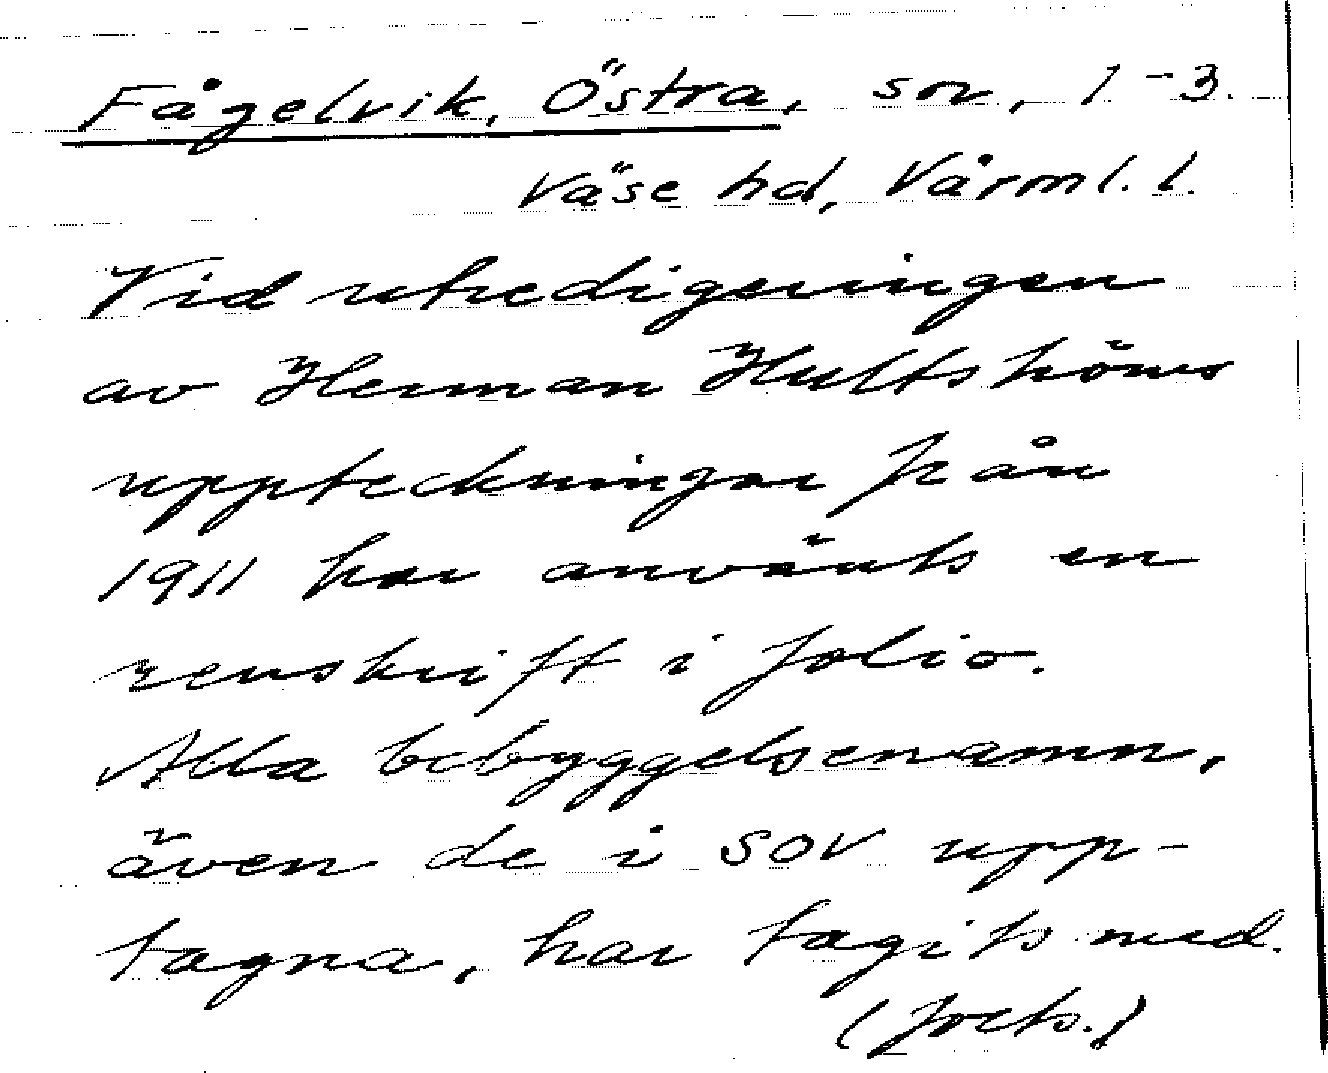 Fågelvik, Östra, sov, 1-3.
Väse hd, Värml. l.
Vid utredigeringen
av Herman Hultströms
uppteckningar från
1911 har använts en
renskrift i folio.
Alla bebyggelsenamn,
även de i SOV upp-
tagna, har tagits med.
(forts.)